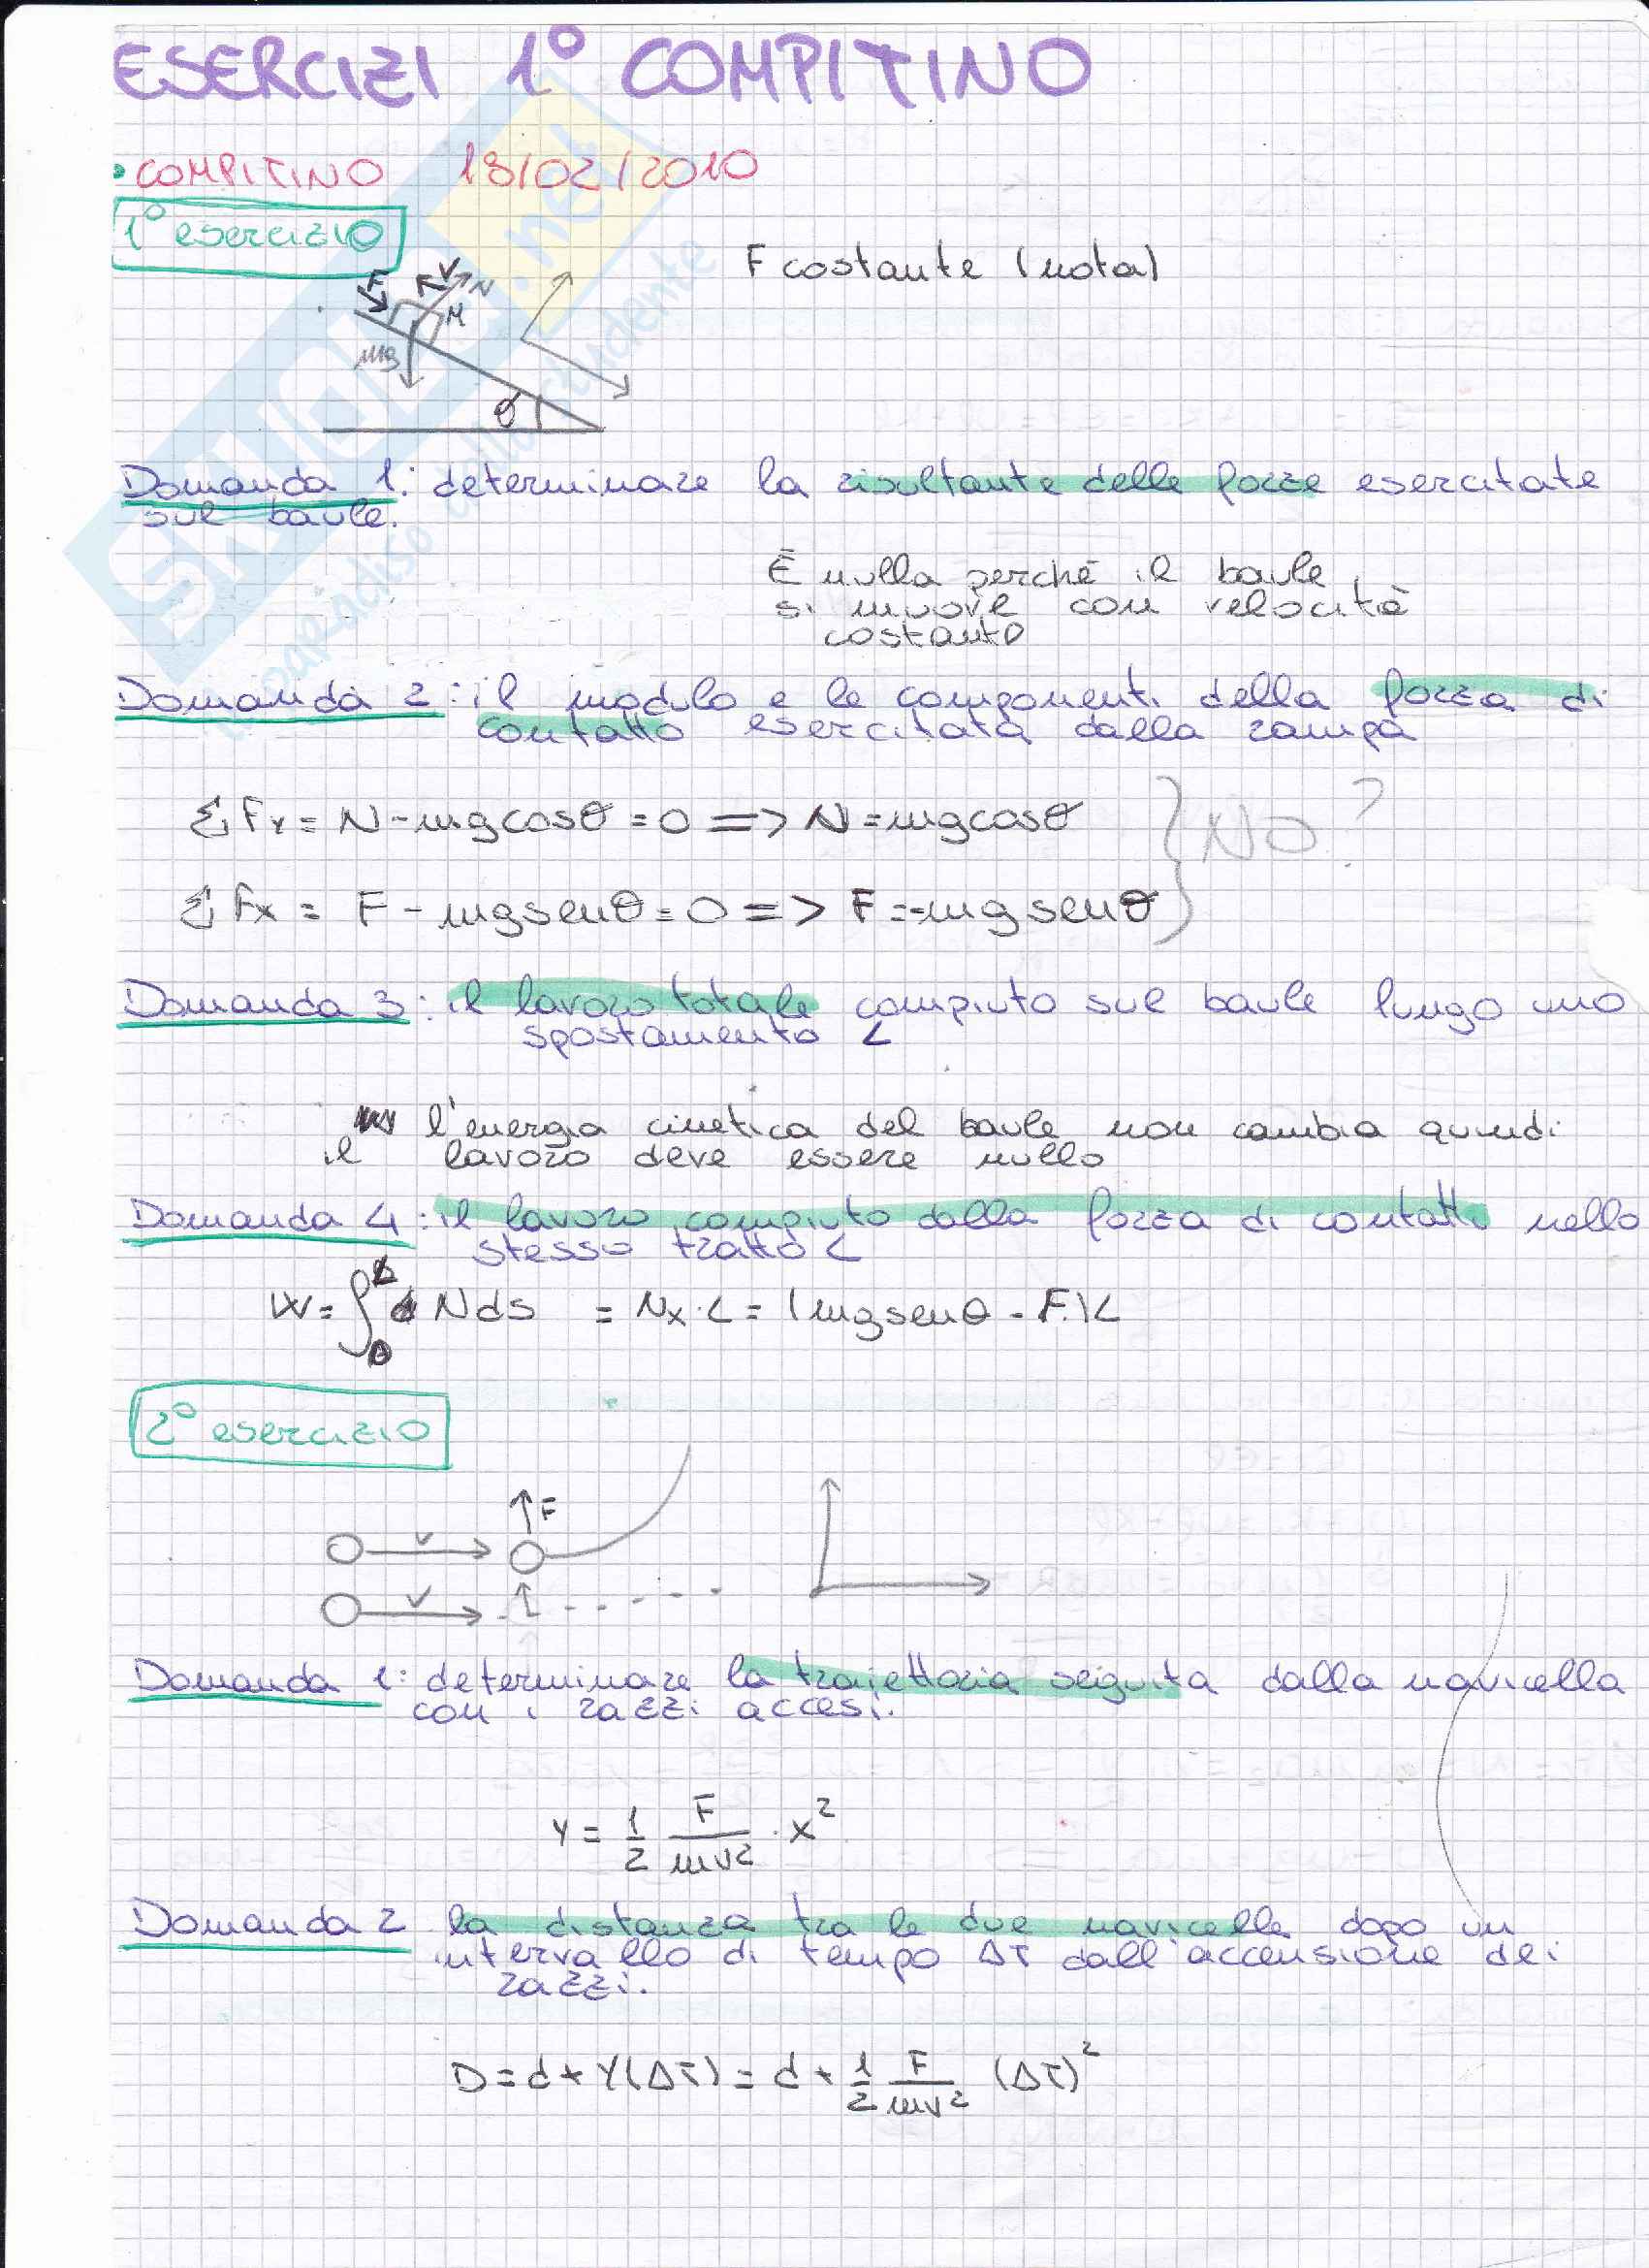 ESERCIZI 1° COMPITINO
• COMPITINO 18/02/2010
1° esercizio
F costante (nota)
F V N
M
mg
θ
Domanda 1: determinare la risultante delle forze esercitate
sul baule.
È nulla perchè il baule
si muove con velocità
costante
Domanda 2: il modulo e le componenti della forza di
contatto esercitata dalla rampa
ΣFy = N - mgcosθ = 0 => N = mgcosθ
NO?
ΣFx = F - mgsenθ = 0 => F = -mgsenθ
Domanda 3: il lavoro totale compiuto sul baule lungo uno
spostamento L
l'energia cinetica del baule non cambia quindi
il lavoro deve essere nullo
Domanda 4: il lavoro compiuto dalla forza di contatto nello
stesso tratto L
W = ∫ N ds = Nx · L = (mgsenθ - F)L
2° esercizio
F
V
V
Domanda 1: determinare la traiettoria seiguita dalla navicella
con i razzi accesi.
Y = 1/2 F/mv² · x²
Domanda 2 la distanza tra le due navicelle dopo un
intervallo di tempo ΔT dall'accensione dei
razzi.
D = d + Y(ΔT) = d + 1/2 F/mv² (ΔT)²
SKUOLA.net
il paradiso dello studente